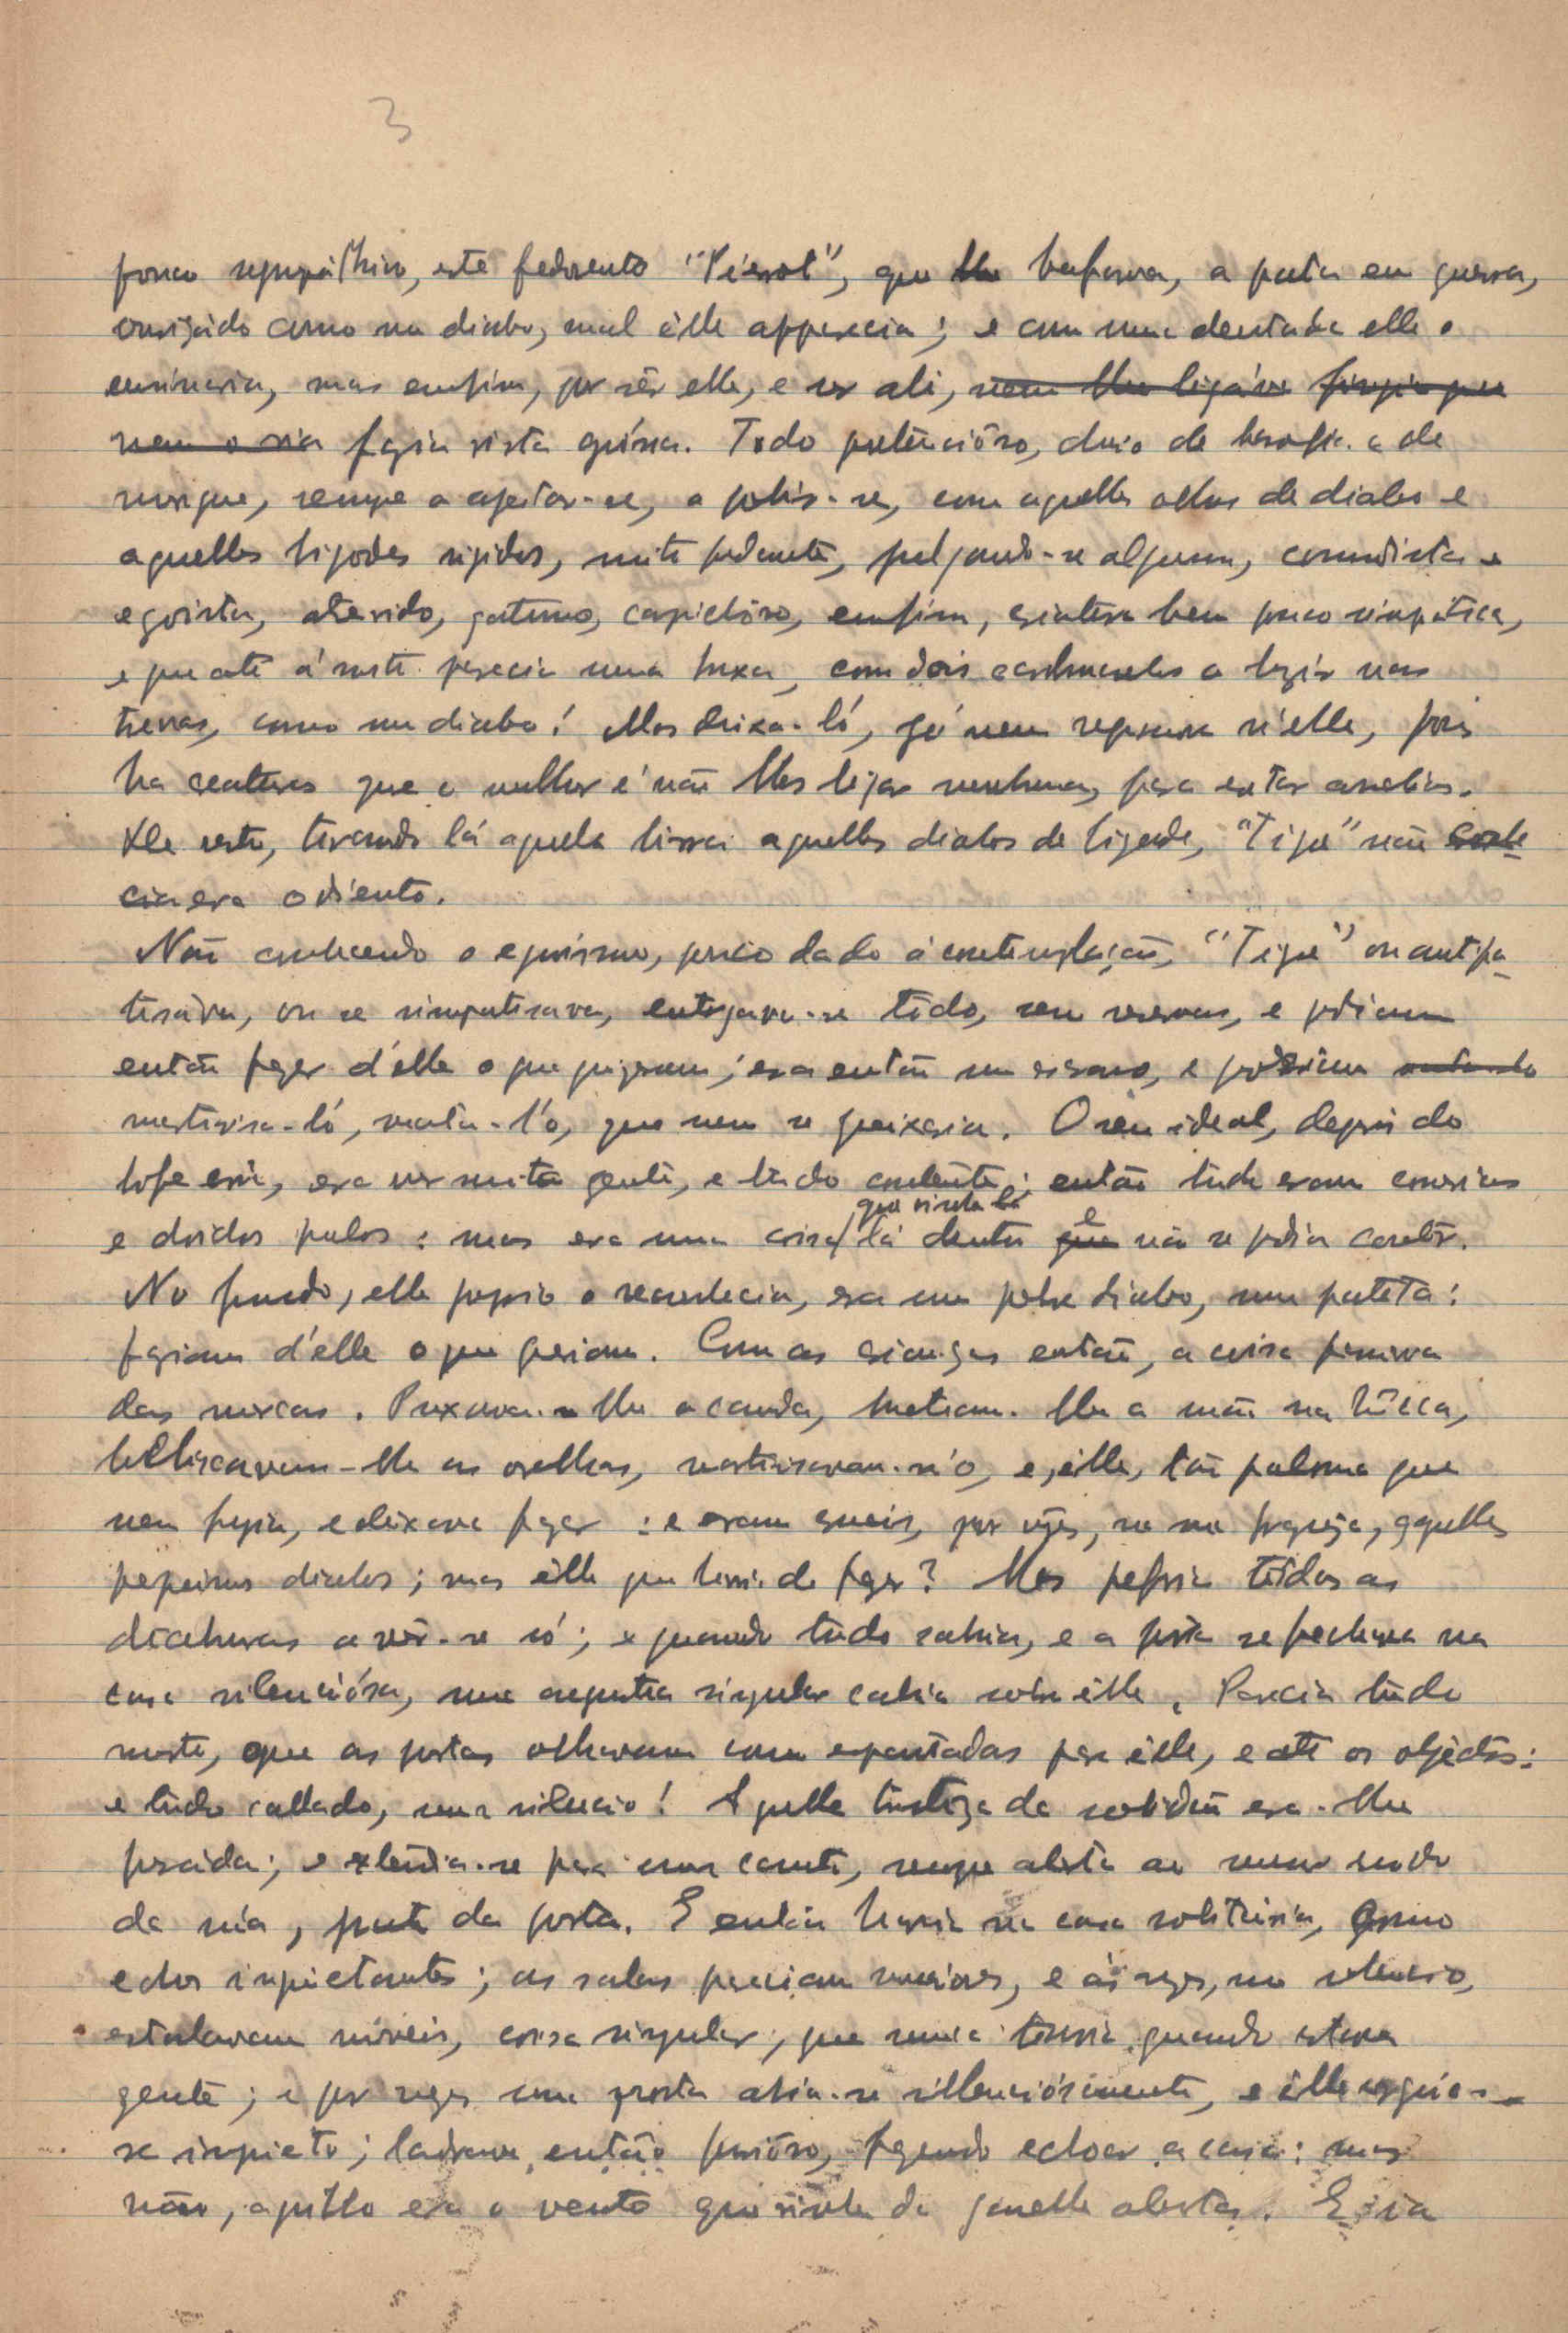 3
pouco sympáthico, este fedorento "Piérrot", que bufava, a pata em guerra,
ouriçádo como um diabo, mal êlle apparecia; e com uma dentada elle o
ensinaria, mas emfim, por sêr elle, e ser ali, nem lhe ligáva fingia que
nem o via fazia vista gróssa. Todo pretencióso, cheio de bazofia e de
, sempre a ageitar-se, a polir-se, com aquelles olhos de diabo e
aquelles bigodes rigidos, muito pedante, julgando-se alguem, comodista e
egoista, atrevido, gatuno, caprichôso, emfim, criatura bem pouco simpática,
e que até á noite parecia uma bruxa, com dois carbunculos a luzir nas
trevas, como um diabo! Mas deixa-ló, já nem reparava n'elle, pois
ha creaturas que o melhor é não lhes ligar nenhuma, para evitar arrelias.
De resto, tirando lá aquela birra aquelles diabos de bigode, "Tigre" não conhe-
cia era odiento.
Não conhecendo o egoismo, pouco dado á contemplação, "Tigre" ou antipa-
tisáva, ou se simpatisava, entregava-se tôdo, sem reservas, e podiam
então fazer d'élle o que quizessem; era então um escravo, e podiam
martirisa-ló, mata-l'o, que nem se queixaria. O seu ideal, depois do
, era ver muita gente, e tudo contente; então tudo eram correrias
e doidos pulos: mas era uma coisa que vinha lá de dentro que e não se podia contêr.
No fundo, elle proprio o reconhecia, era um pobre diabo, um patéta:
faziam d'élle o que queriam. Com as crianças então, a coisa passava
das marcas. Puxavam-lhe a cauda, metiam-lhe a mão na bôcca,
belliscavam-lhe as orelhas, martirisavam-n'o, e, êlle, tão palerma que
nem fugia, e deixava fazer: e eram crueis, por vezes, na sua franqueza, aquelles
pequenos diabos; mas êlle que havia de fazer? Mas preferia tôdas as
diabruras a vêr-se só; e quando tudo sahia, e a porta se fechava na
casa silenciósa, uma angustia singular cahia sobre êlle. Parecia tudo
morto, que as portas olhavam como espantadas para êlle, e até os objéctos:
e tudo callado, num silencio! Aquella tristeza da solidão era-lhe
pesada; e extendia-se para um canto, sempre alerta ao menor ruido
da rúa, junto da porta. E então havia na casa solitária, como
echos inquietantes; as salas pareciam maiores, e ás vezes, no silencio,
estalavam móveis, coisa singular, que nunca ouvia quando estava
gente; e por vezes uma porta abria-se silenciósamente, e êlle erguia-
se inquieto; ladrava então furiôso, fazendo echoar a casa: mas
não, aquillo era o vento que vinha da janella aberta. E ia